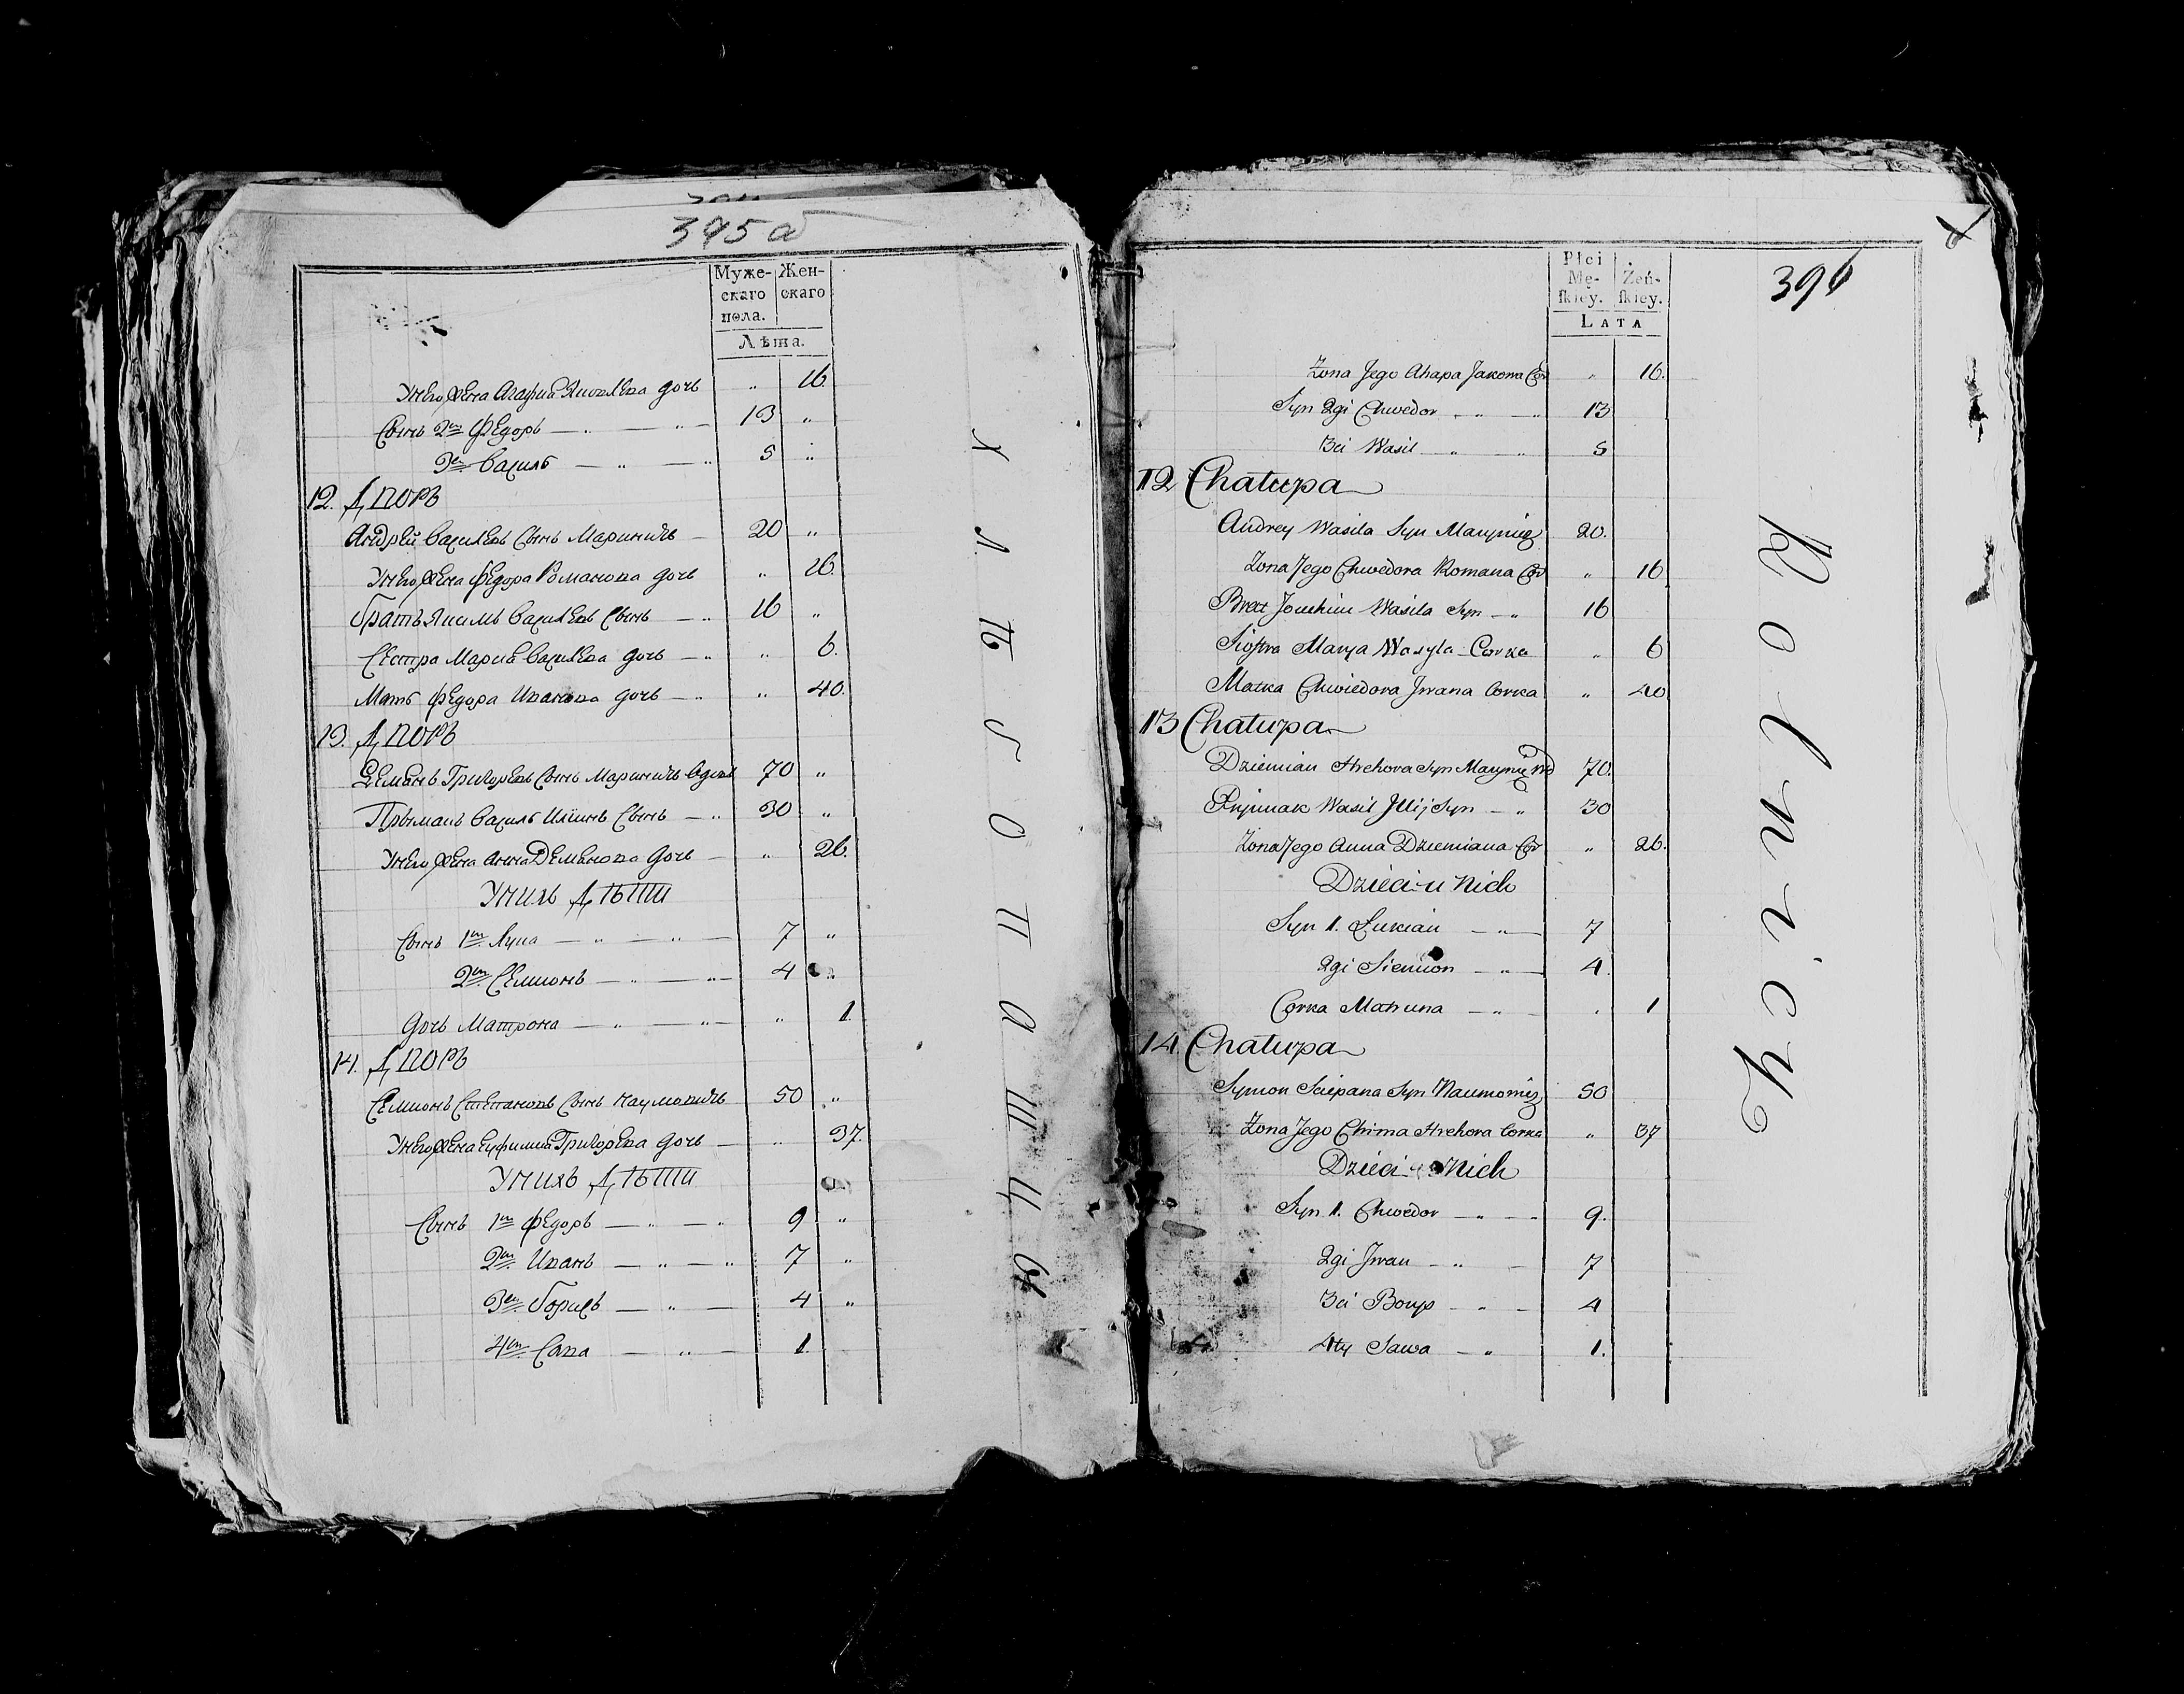 395 а
Муже-
скаго
пола.
Жен-
скаго
Лѣта.
У него жена Агафия Яковлева дочь " 16
Сынъ 2й Федоръ — " — " — 13 "
3й Василь — " — " 5 "
12. Дворъ
Андрей Василевъ Сынъ Мариничъ — 20 "
У него жена Федора Романова дочь " 16.
Братъ Якимъ Василевъ Сынъ — " 16 "
Сестра Мария Василева дочь — " " 6.
Мать Федора Иванова дочь — " " 40.
13. Дворъ
Демянъ Григоревъ Сынъ Мариничъ Вдовъ 70 "
Прымакъ Василь Илиинъ Сынъ — " 30 "
У него жена Анна Демянова Дочь — " 26.
У нихъ Дѣти
Сынъ 1й Лука — " — " — 7 "
2й Семионъ — " — "— 4 "
Дочь Матрона — " — "— " 1.
14. Дворъ
Семионъ Степановъ Сынъ Наумовичъ 50 "
У него жена Еуфимия Григорева дочь — " 37.
У нихъ Дѣти
Сынъ 1й Федоръ — " — " 9 "
2й Иванъ — " — " 7 "
3й Борисъ — " — 4 "
4й Сава — " — 1.
Хлѣбопашцы
396
Płci
Mę-
skiey.
Żeń-
skiey.
LATA
Żona Jego Ahapa Jakowa Cor " 16.
Syn 2gi Chwedor — " — 13
3ci Wasil — " " 5
12 Chałupa
Andrey Wasila Syn Marynicz 20.
Żona Jego Chwedora Romana Cor " 16
Brat Jouchim Wasila Syn — " 16
Siostra Marya Wasyla Corka " 6
Matka Chwiedora Jwana Corka " 40
13 Chałupa
Dziemian Hrehora Syn Marynicz Wd 70.
Prymak Wasil Jllij Syn — " 30
Żona Jego Anna Dziemiana Cor " 26.
Dzieci u Nich
Syn 1. Łukian — " — 7
2gi Siemion — " — 4.
Corka Matruna — " — " 1
14. Chałupa
Symon Sciepana Syn Naumowicz 50
Żona Jego Chima Hrehora Corka " 37
Dzieci u Nich
Syn 1. Chwedor — " — 9.
2gi Jwan — " — 7
3ci Borys — " — 4
4ty Sawa — " 1.
Rolnicy